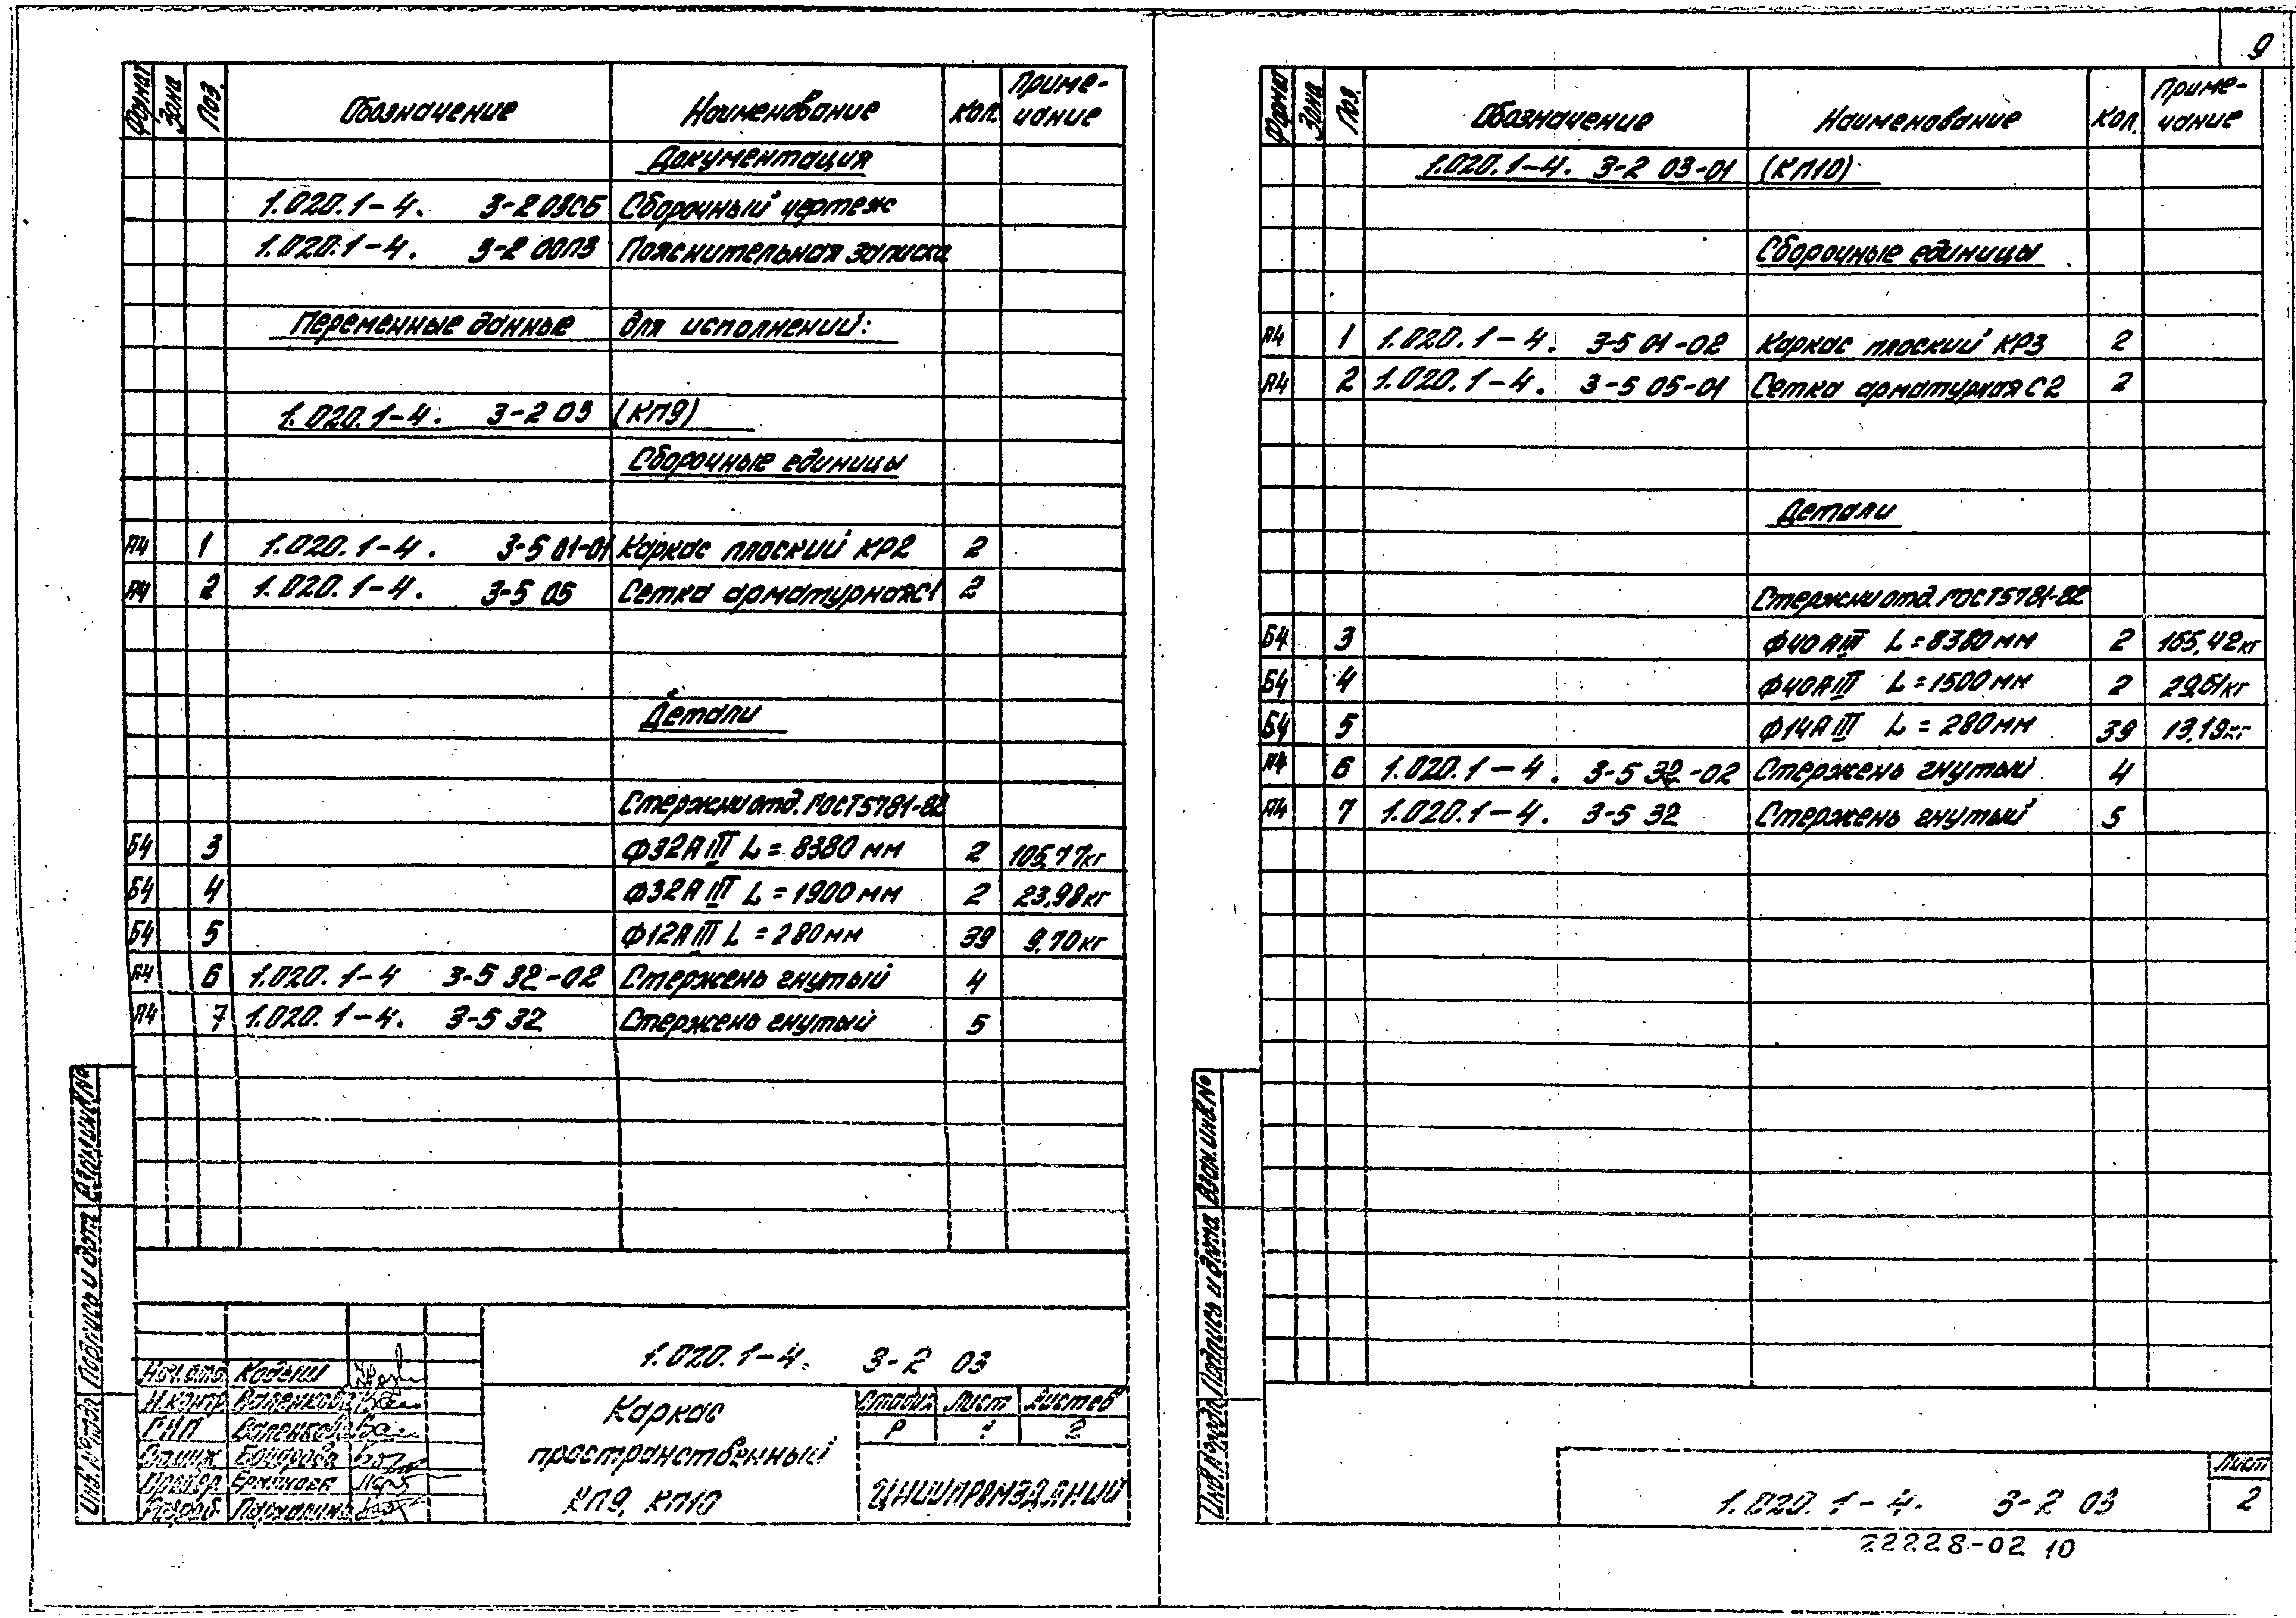 9
Формат Зона Поз. Обозначение Наименование Кол. Приме-чание
Документация
1.020.1-4. 3-2 03СБ Сборочный чертеж
1.020.1-4. 3-2 00ПЗ Пояснительная записка
Переменные данные для исполнений:
1.020.1-4. 3-2 03 (КП9)
Сборочные единицы
А4 1 1.020.1-4. 3-5 01-01 Каркас плоский КР2 2
А4 2 1.020.1-4. 3-5 05 Сетка арматурная С1 2
Детали
Стержни отд. ГОСТ5781-82
Б4 3 Ф32АIII L=8380 мм 2 105,77кг
Б4 4 Ф32АIII L=1900 мм 2 23,98кг
Б4 5 Ф12АIII L=280мм 39 9,70кг
А4 6 1.020.1-4 3-5 32-02 Стержень гнутый 4
А4 7 1.020.1-4. 3-5 32 Стержень гнутый 5
Инв.№подл. Подпись и дата Взам.инв.№
1.020.1-4. 3-2 03
Нач.отд Кодыш
Н.контр
ГИП
Разраб.
Каркас
пространственный
КП9, КП10
Стадия Лист Листов
Р 1 2
ЦНИИПРОМЗДАНИЙ
Формат Зона Поз. Обозначение Наименование Кол. Приме-чание
1.020.1-4. 3-2 03-01 (КП10)
Сборочные единицы
А4 1 1.020.1-4. 3-5 01-02 Каркас плоский КР3 2
А4 2 1.020.1-4. 3-5 05-01 Сетка арматурная С2 2
Детали
Стержни отд. ГОСТ5781-82
Б4 3 Ф40АIII L=8380мм 2 165,42кг
Б4 4 Ф40АIII L=1500мм 2 29,61кг
Б4 5 Ф14АIII L=280мм 39 13,19кг
А4 6 1.020.1-4. 3-5 32-02 Стержень гнутый 4
А4 7 1.020.1-4. 3-5 32 Стержень гнутый 5
Инв.№подл. Подпись и дата Взам.инв.№
1.020.1-4. 3-2 03
Лист
2
22228-02 10